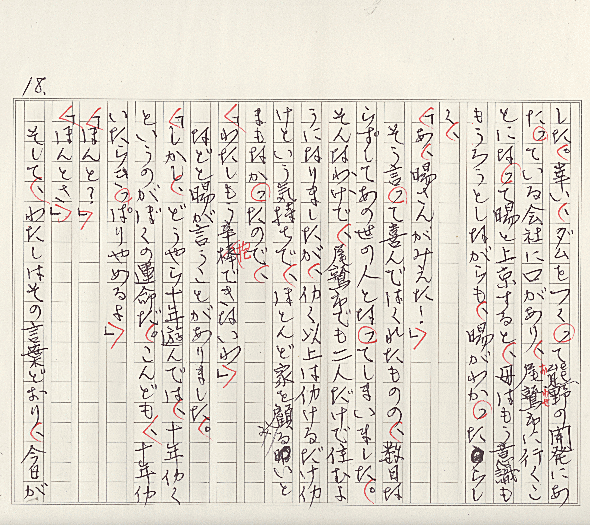 18.
した。幸い、ダムをつくって熊野の開発にあ
たっている会社に口があり、尾鷲市に行くこ
とになって暘と上京すると、母はもう意識も
もうろうとしながらも、暘がわかったらし
く、
「あ、暘さんがみえた!」
そう言って喜んではくれたものの、数日な
らずしてあの世の人となってしまいました。
そんなわけで、尾鷲市でも二人だけで住むよ
うになりましたが、働く以上は働けるだけ働
けという気持ちで、ほとんど家を顧る暇いと
まもなかったので、
「わたしもう辛棒できないわ」
などと暘が言うことがありました。
「しかし、どうやら十年遊んでは、十年働く
というのがぼくの運命だ。こんども、十年働
いたらきっぱりやめるよ」
「ほんと?」
「ほんとさ」
そして、わたしはその言葉どおり、今日が